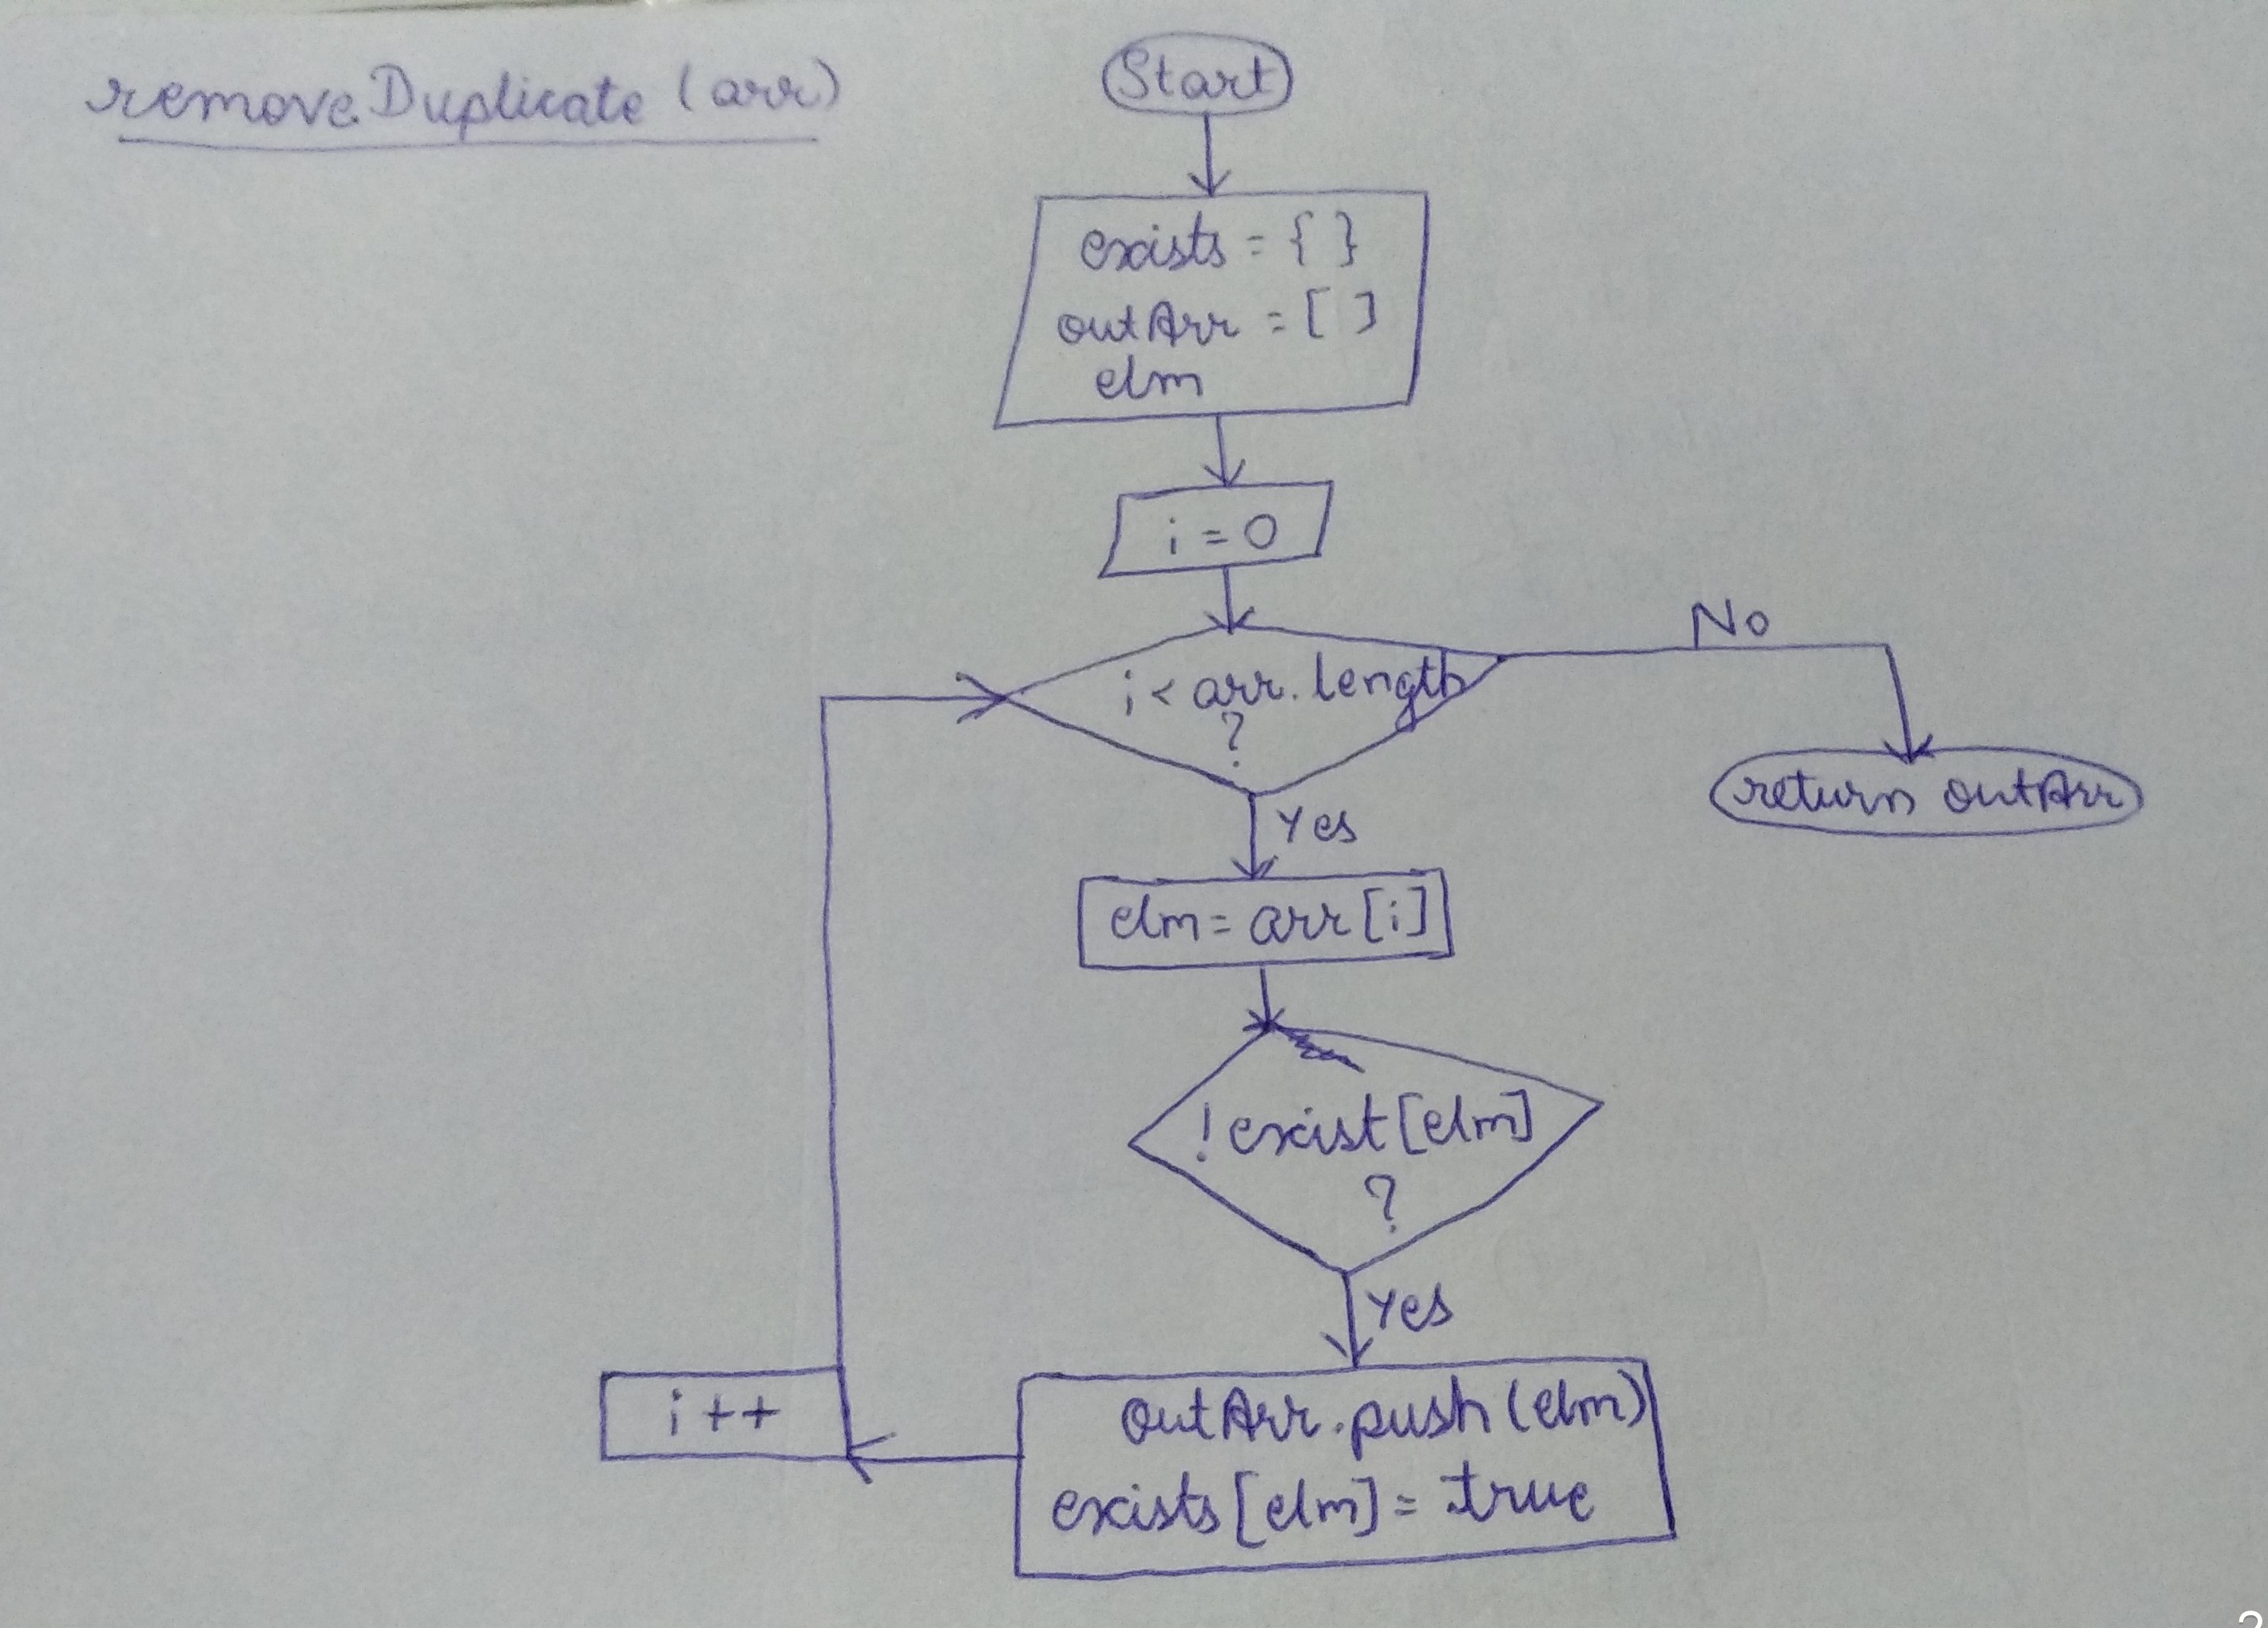 removeDuplicate (arr)
Start
exists = { }
outArr = [ ]
elm
i = 0
i < arr.length
?
No
return outArr
Yes
elm = arr[i]
!exist[elm]
?
Yes
outArr.push(elm)
exists[elm] = true
i++